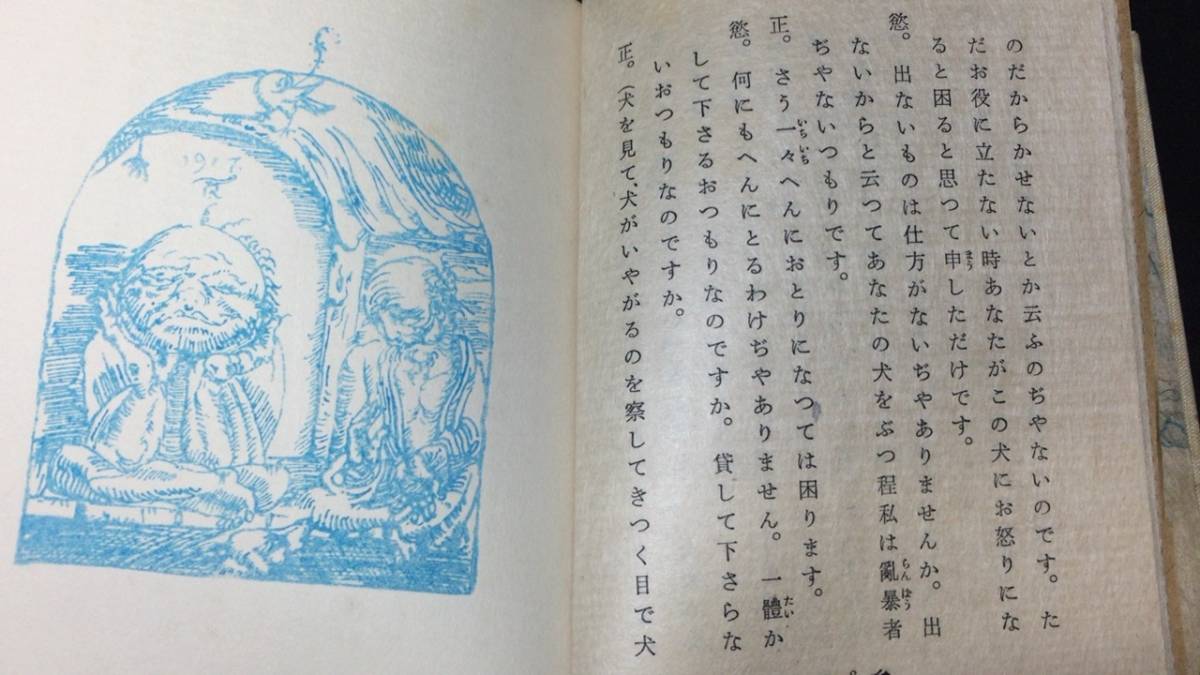 のだからかせないとか云ふのぢやないのです。た
だお役に立たない時あなたがこの犬にお怒りにな
ると困ると思つて申しただけです。
慾。出ないものは仕方がないぢやありませんか。出
ないからと云つてあなたの犬をぶつ程私は亂暴者
ぢやないつもりです。
正。さう一々へんにおとりになつては困ります。
慾。何にもへんにとるわけぢやありません。一體か
して下さるおつもりなのですか。貸して下さらな
いおつもりなのですか。
正。(犬を見て、犬がいやがるのを察してきつく目で犬
1917